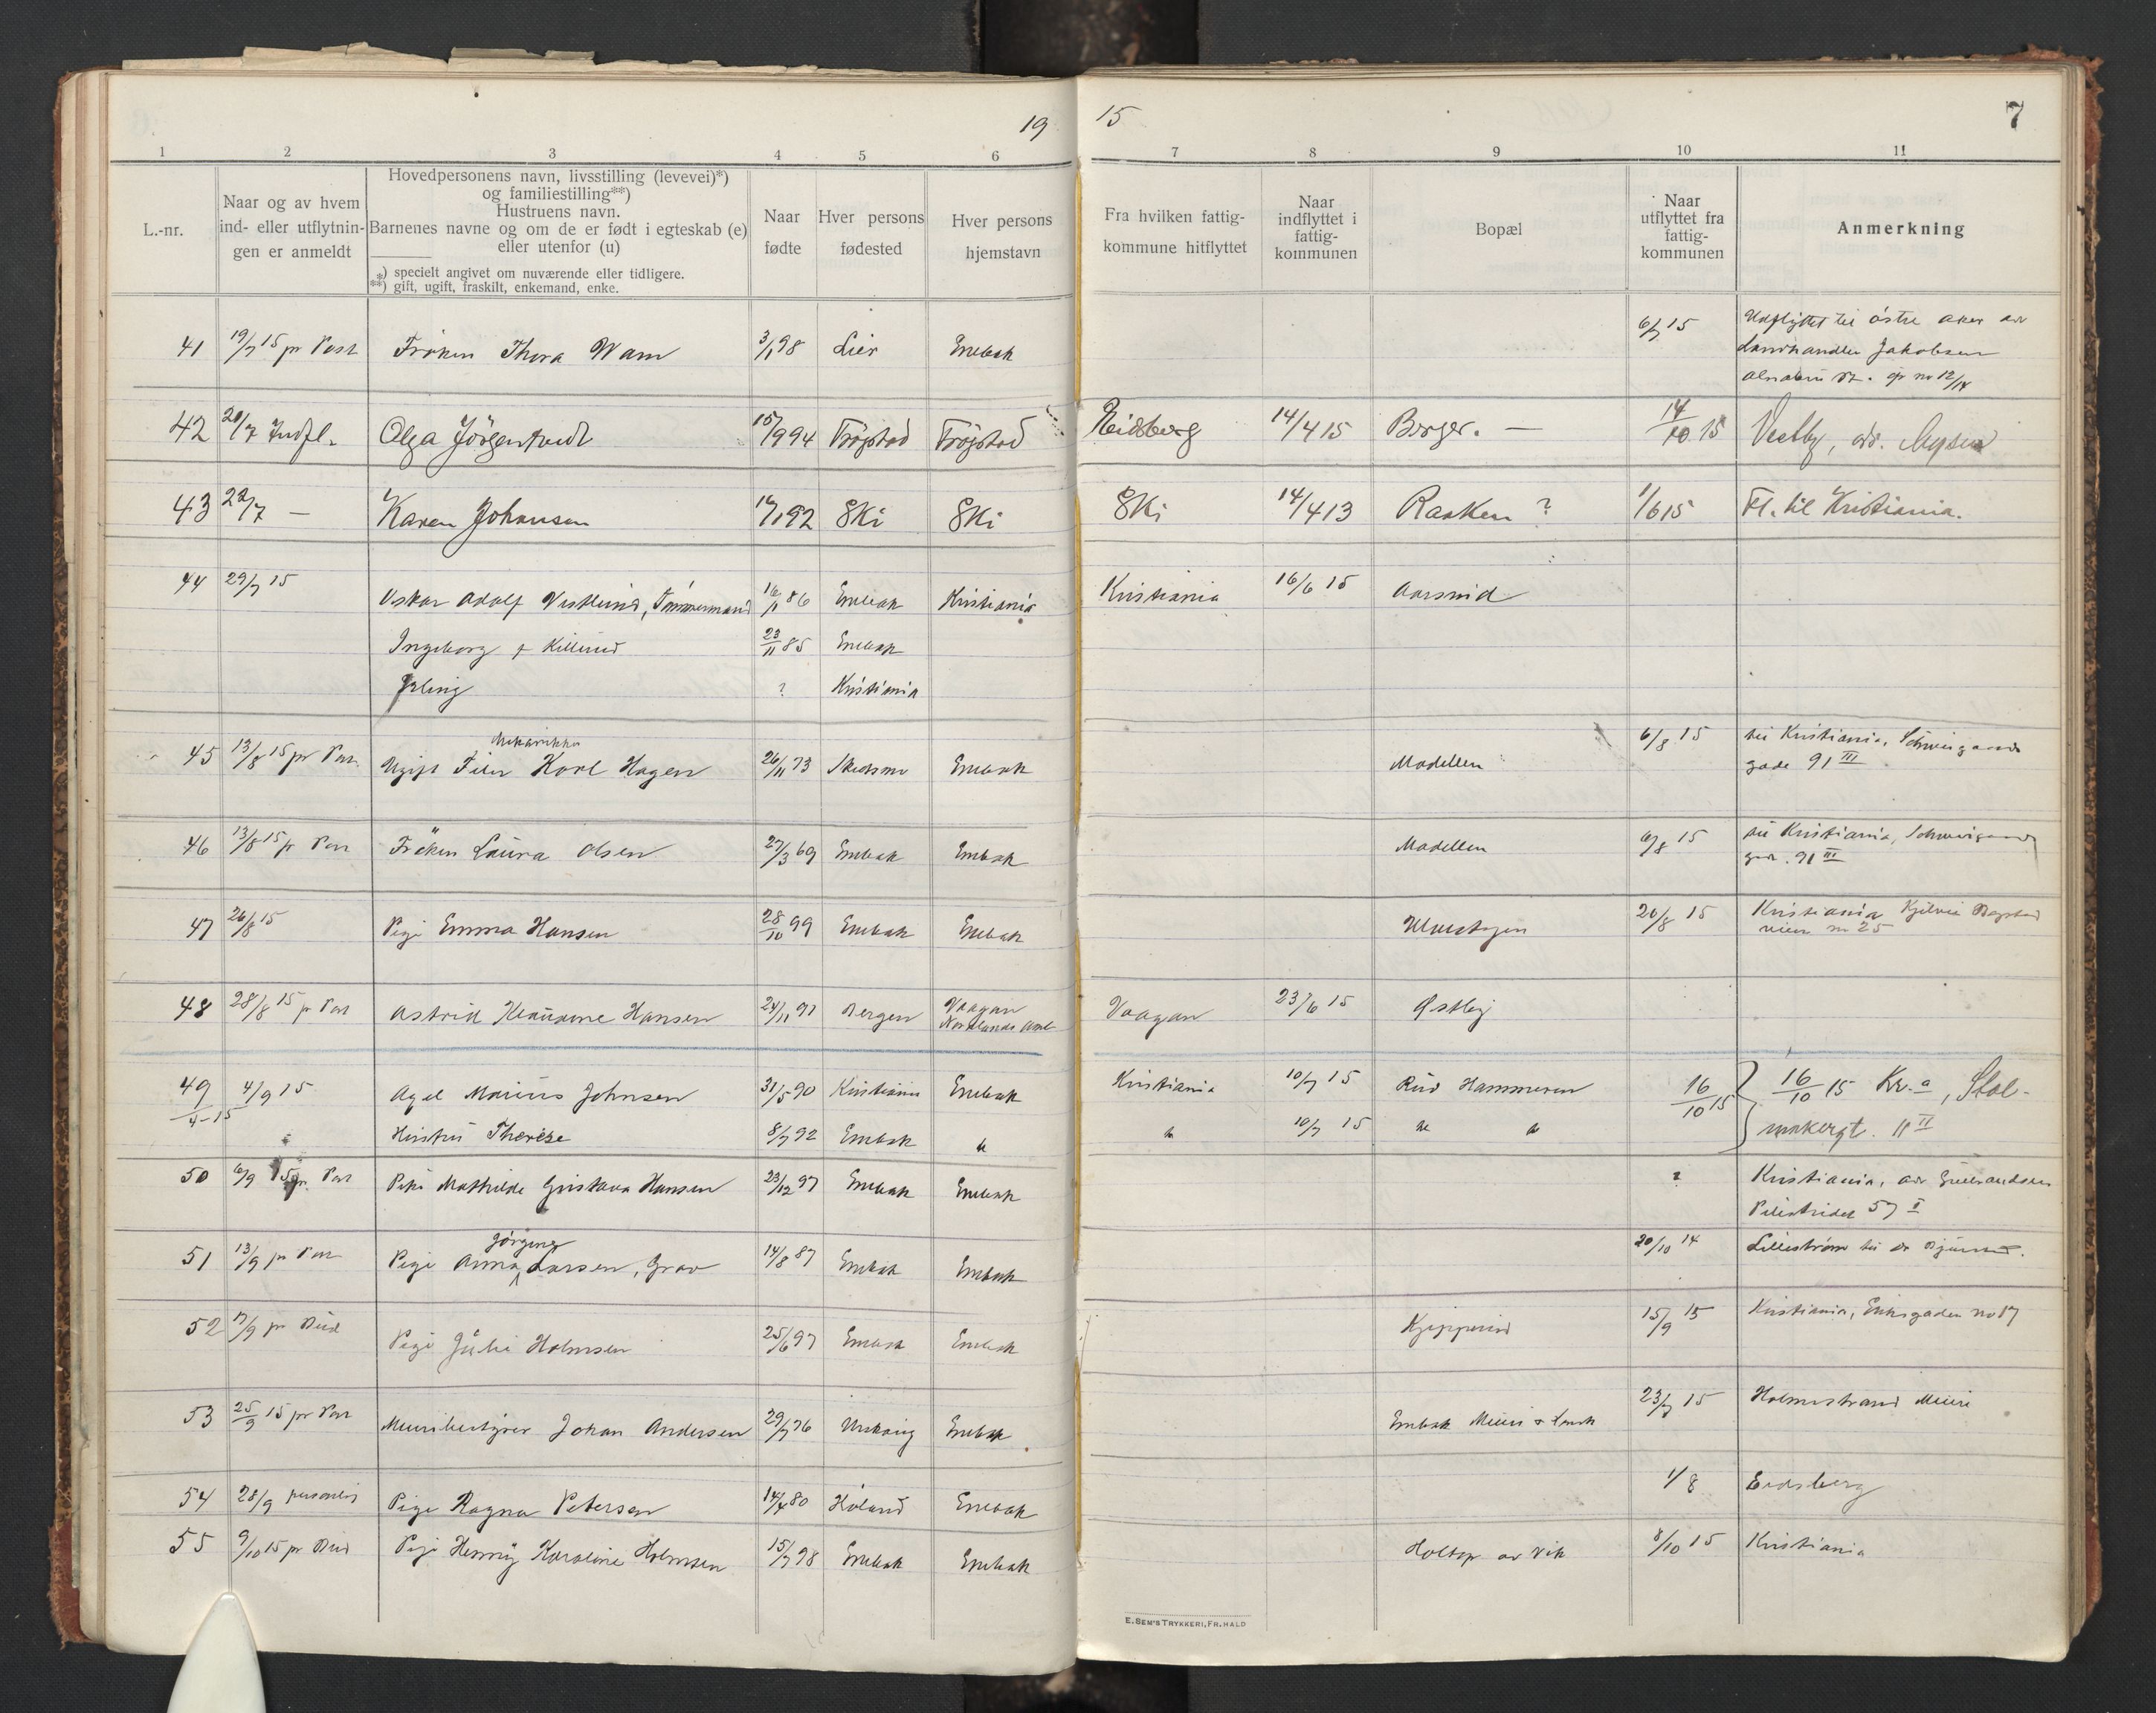 19 15 7
1 2 3 4 5 6 7 8 9 10 11
L.-nr.
Naar og av hvem
ind- eller utflytnin-
gen er anmeldt
Hovedpersonens navn, livsstilling (levevei)*)
og familiestilling**)
Hustruens navn.
Barnenes navne og om de er født i egteskab (e)
eller utenfor (u)
*) specielt angivet om nuværende eller tidligere.
**) gift, ugift, fraskilt, enkemand, enke.
Naar
fødte
Hver persons
fødested
Hver persons
hjemstavn
Fra hvilken fattig-
kommune hitflyttet
Naar
indflyttet i
fattig-
kommunen
Bopæl
Naar
utflyttet fra
fattig-
kommunen
Anmerkning
41 19/7 15 pr Post Fröken Thora Wam 3/1 98 Lier Enebak 6/7 15 Udflyttet til östre aker adr
Landhandler Jakobsen
Alnabru St.
42 20/7 Indfl. Olga Jörgentvedt 15/9 94 Trögstad Trögstad Eidsberg 14/4 15 Borger. — 14/10 15 Vestby, adr. Mysen
43 22/7 — Karen Johansen 92 Ski Ski Ski 14/4 13 Raaken ? 1/6 15 Fl. til Kristiania.
44 29/7 15 Oskar Adolf Vestlund, Tömmermand 16/11 86 Enebak Kristiania Kristiania 16/6 15 Aarsrud
Ingeborg f Killerud 23/11 85 Enebak
Erling ? Kristiania
Mekaniker
45 13/8 15 pr Post Ugift Karl Hagen 26/11 73 Skedsmo Enebak Modellen 6/8 15 til Kristiania, Schweigaards
gade 91 III
46 13/8 15 pr Post Fröken Laura Olsen 27/3 69 Enebak Enebak Modellen 6/8 15 til Kristiania, Schweigaards
gade. 91 III
47 26/8 15 Pige Emma Hansen 28/10 99 Enebak Enebak 20/8 15 Kristiania
veien no 25
48 28/8 15 pr Post Astrid Hansen 24/11 97 Bergen Vaagan
Nordlands Amt Vaagan 23/6 15 Østby
49 4/9 15 Axel Marius Johnsen 31/5 90 Kristiania Enebak Kristiania 10/7 15 Rud Hammeren 16/10 15 16/10 15 Kr.a, Stol-
Hustru Therese 8/7 92 Enebak " " 10/7 15 " " makergt. 11 II
50 6/9 15 pr. Post Pike Mathilde Gustava Hansen 23/12 97 Enebak Enebak ? Kristiania, adr Gulbrandsen
Pilestredet 57 I
Jörgine
51 13/9 pr Post Pige Anna Larsen, Grav 14/8 87 Enebak Enebak 20/10 14 Lilleström
52 17/9 pr Bud Pige Julie Holmsen 25/6 97 Enebak Enebak Kjepperud 15/9 15 Kristiania, Eriksgaden no 17
53 25/9 15 pr Post Meieribestyrer Johan Andersen 29/7 76 Urskoug Enebak Enebak Meieri 23/7 15 Holmestrand Meieri
54 28/9 personlig Pige Ragna Petersen 14/4 80 Höland Enebak 1/8 Eidsberg
55 9/10 15 pr Bud Pige Henny Karoline Holmsen 15/7 98 Enebak Enebak Holtop av Vik 8/10 15 Kristiania
E. SEM'S TRYKKERI, FR.HALD